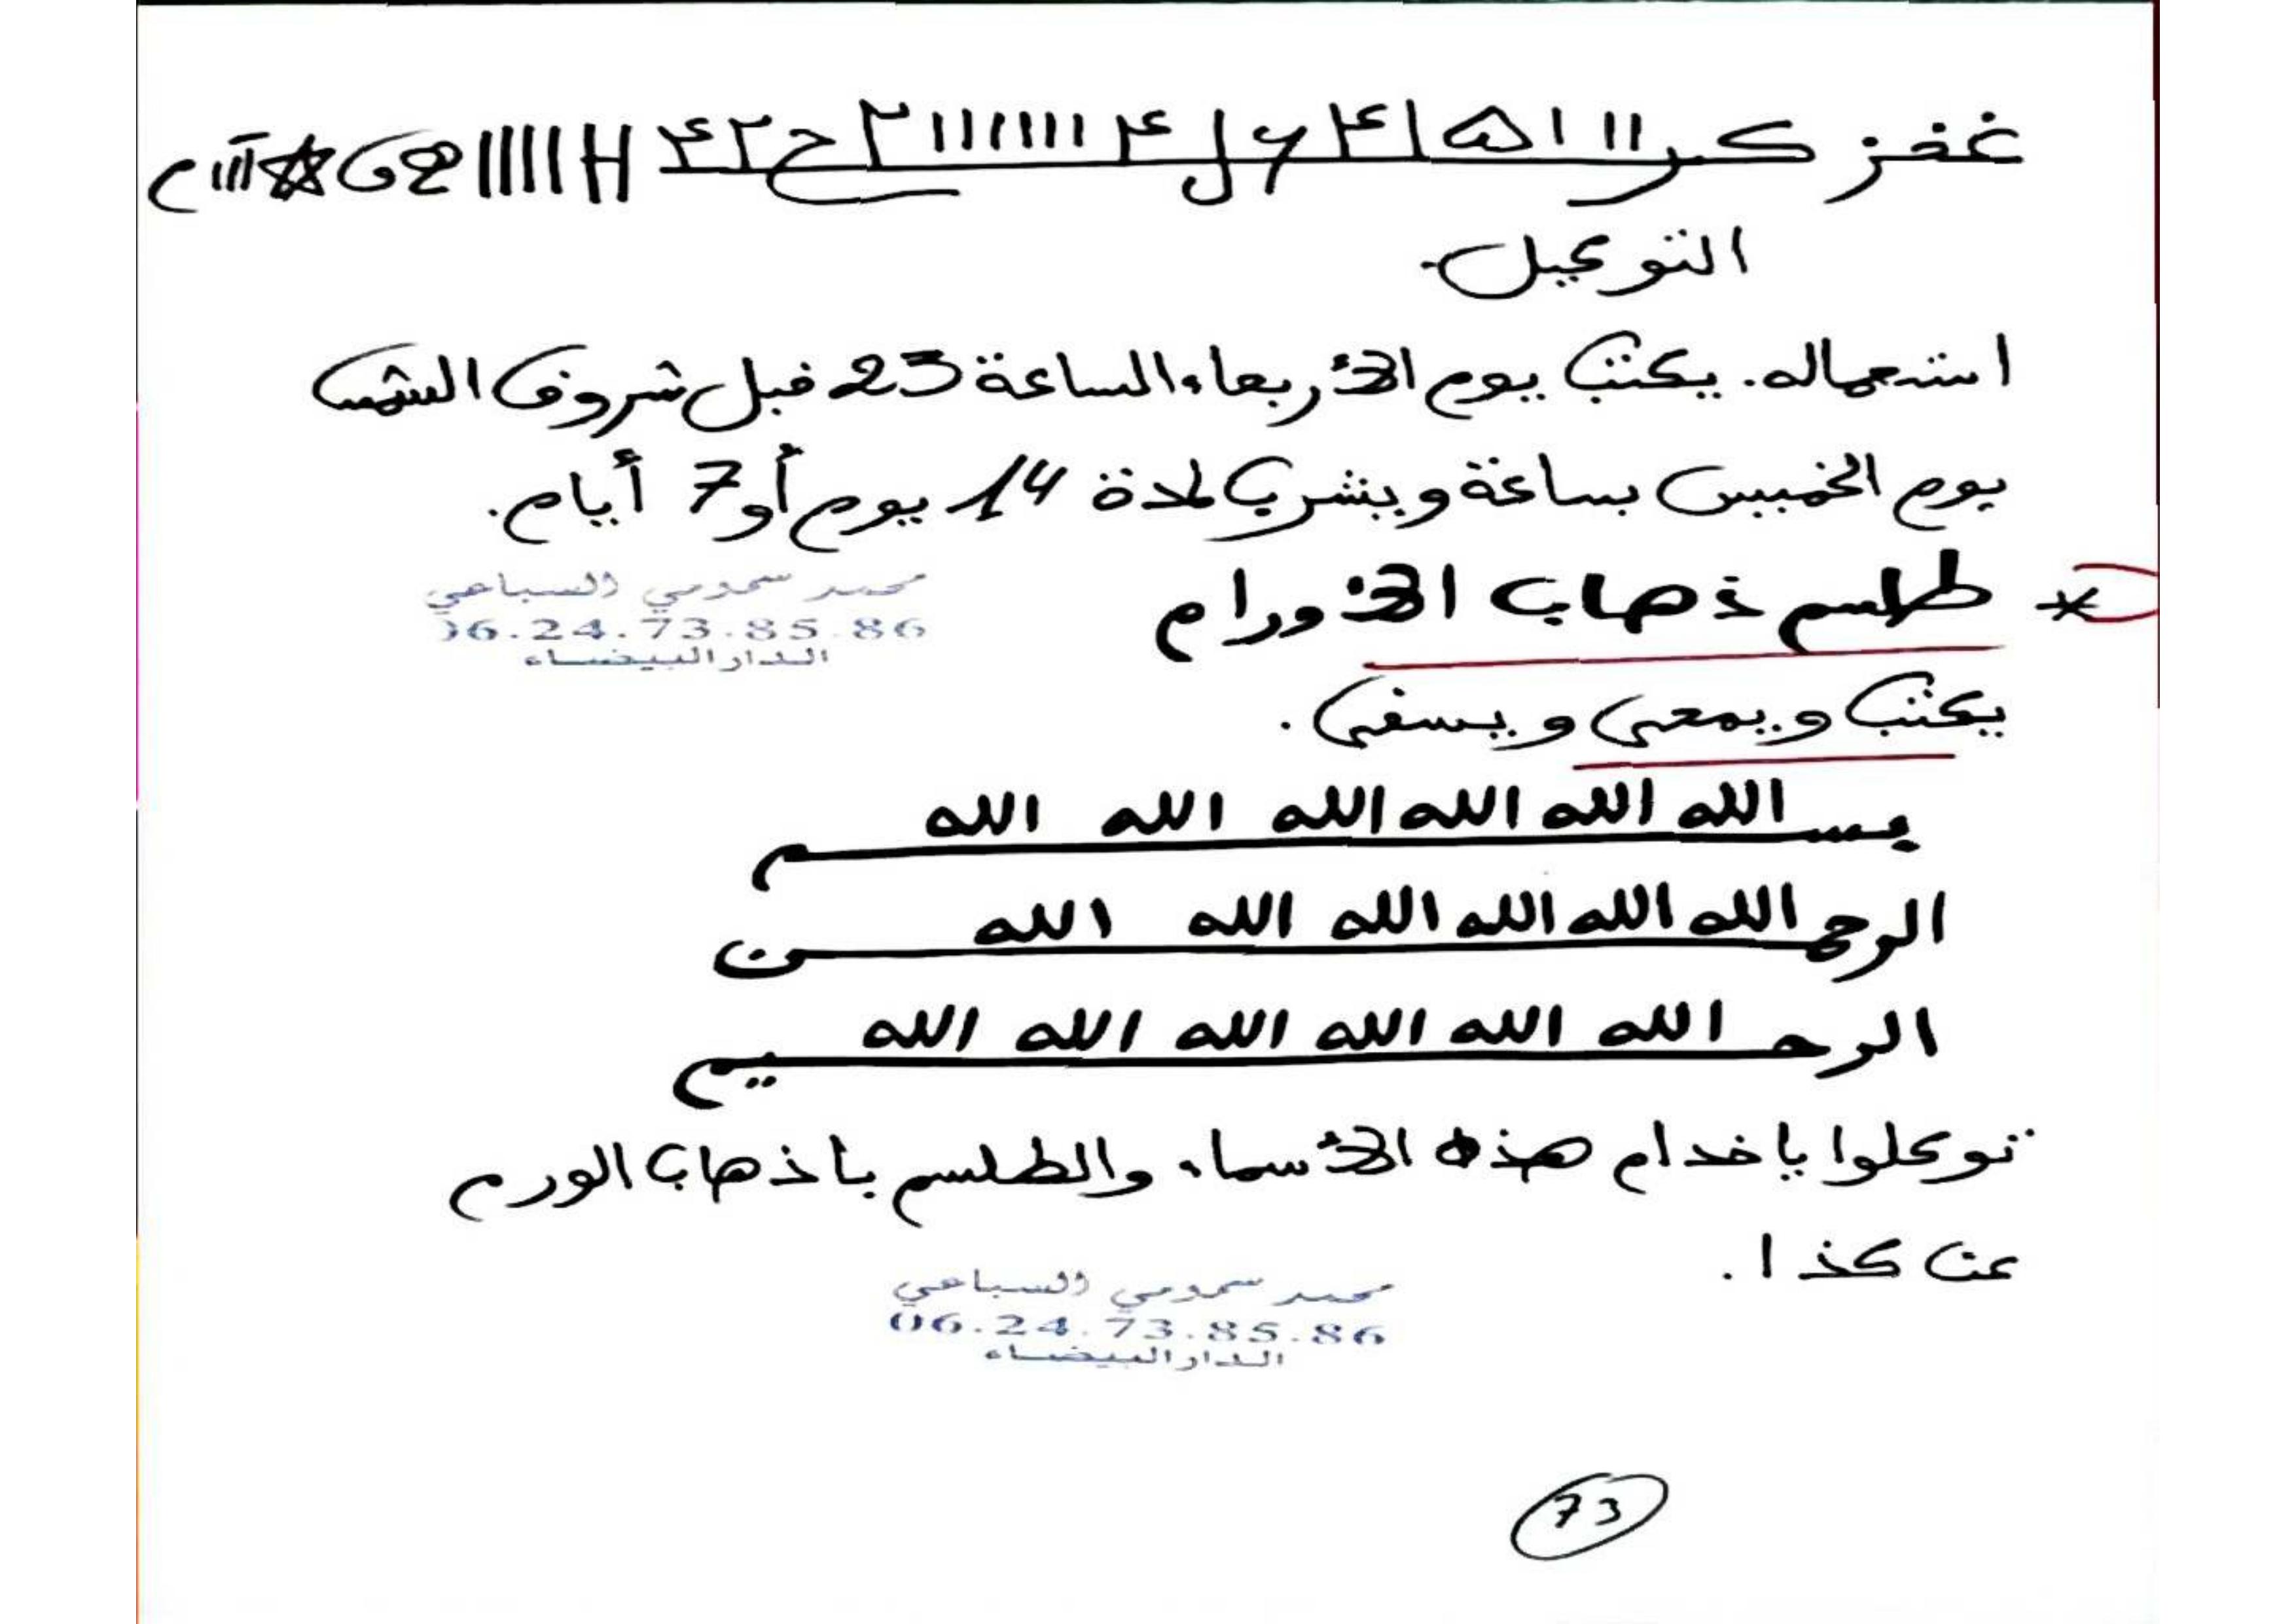 التوكيل.
استعماله. يكتب يوم الأربعاء الساعة 23 قبل شروق الشمس
يوم الخميس بساعة ويشرب لمدة 14 يوم أو 7 أيام.
محمد سمومي السباعي
06.24.73.85.86
الدار البيضاء
* طلسم ذهاب الأورام
يكتب ويمحى ويسقى.
بسـ الله الله الله الله الله الله ـم
الرحمـ الله الله الله الله الله الله ـن
الرحـ الله الله الله الله الله الله ـيم
توكلوا ياخدام هذه الأسماء والطلسم باذهاب الورم
عن كذا.
محمد سمومي السباعي
06.24.73.85.86
الدار البيضاء
73